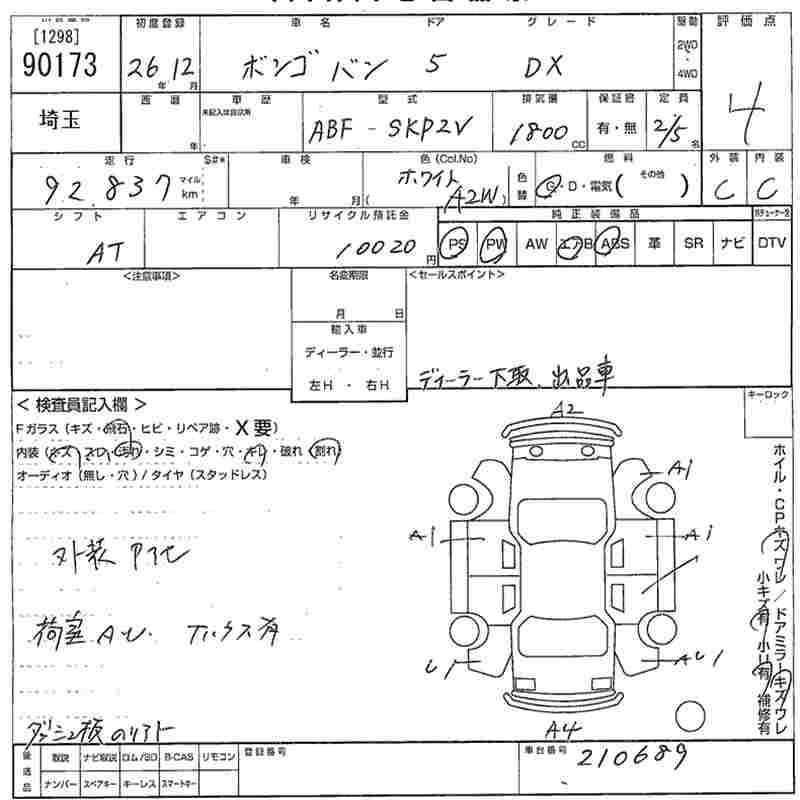 [1298]
90173
初度登録 車名 ドア グレード 駆動 評価点
26 年 12 月 ボンゴ バン 5 DX 2WD・4WD 4
埼玉
西暦 年 車歴 未記入は自家用
型式 排気量 保証書 定員
ABF - SKP2V 1800 CC 有・無 2/5 名
走行 S#* 車検 色 (Col.No) 色替 燃料 外装 内装
92,837 マイル km 年 月 ホワイト ( A2W ) G・D・電気 ( その他 ) C C
シフト エアコン リサイクル預託金 純正装備品
AT 10020 円 PS PW AW エアB ABS 革 SR ナビ DTV
<注意事項> 名変期限 <セールスポイント>
月 日
輸入車
ディーラー・並行
左H ・ 右H
ディーラー下取、出品車
キーロック
<検査員記入欄>
Fガラス (キズ・飛石・ヒビ・リペア跡・X要)
内装 (キズ・スレ・汚れ・シミ・コゲ・穴・キレ・破れ・割れ)
オーディオ (無し・穴) / タイヤ (スタッドレス)
外装
荷室 AU.
A2
A1
A1 A1
U1 AU1
A4
ホイル・CPキズ ワレ/ドアミラーキズ ワレ
小キズ有 小U有 補修有
後送品 取説 ナビ取説 ロム/SD B-CAS リモコン 登録番号 車台番号 210689
ナンバー スペアキー キーレス スマートキー